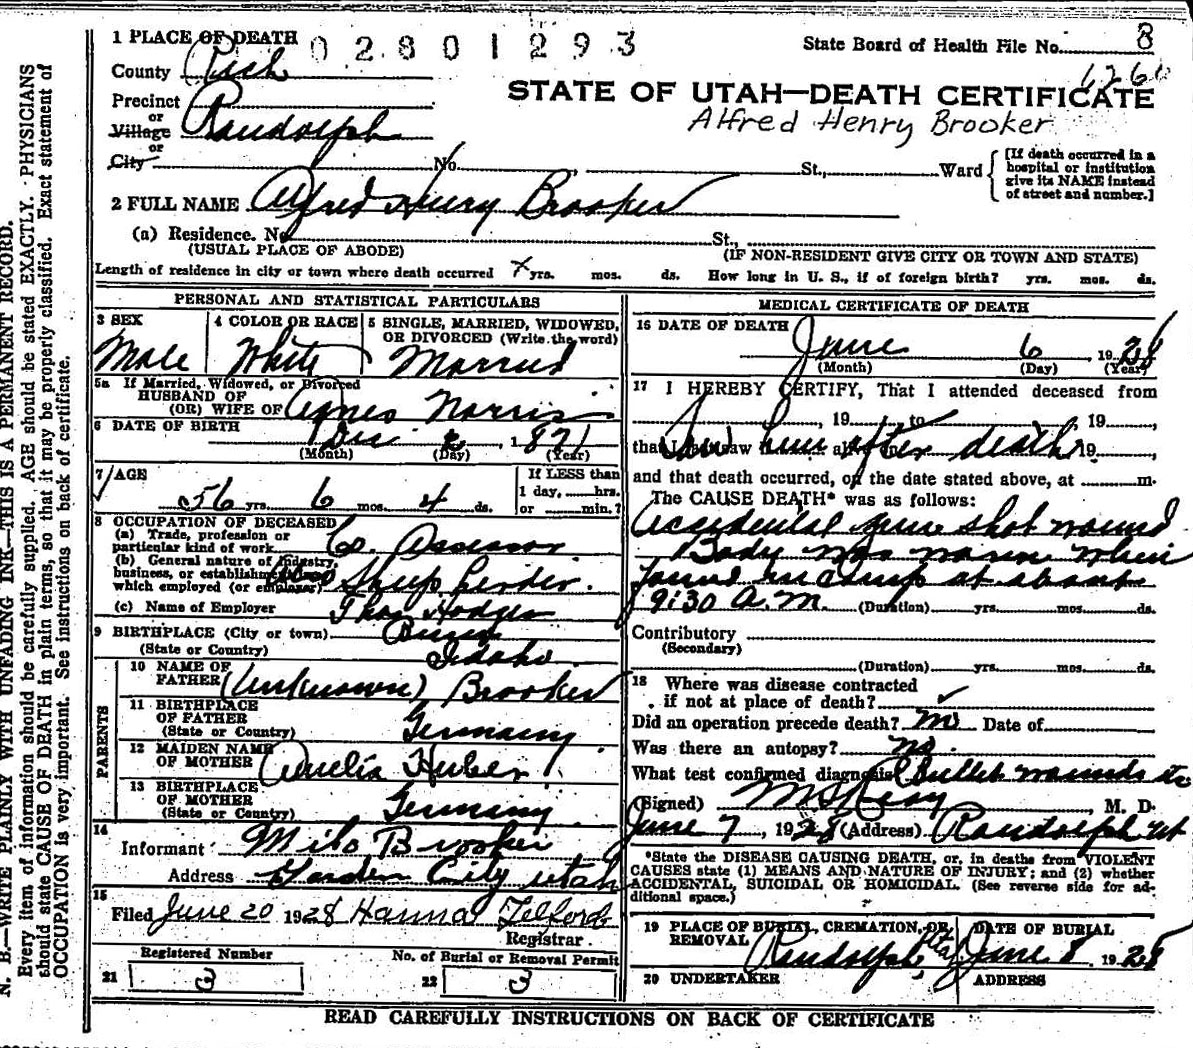 1 PLACE OF DEATH 02801293 State Board of Health File No. 8
County Rich
1260
STATE OF UTAH—DEATH CERTIFICATE
Alfred Henry Brooker
Precinct
or
Village Randolph
or
City No. St., Ward
[If death occurred in a hospital or institution give its NAME instead of street and number.]
2 FULL NAME Alfred Henry Brooker
(a) Residence. No. St.,
(USUAL PLACE OF ABODE) (IF NON-RESIDENT GIVE CITY OR TOWN AND STATE)
Length of residence in city or town where death occurred yrs. mos. ds. How long in U. S., if of foreign birth? yrs. mos. ds.
PERSONAL AND STATISTICAL PARTICULARS
3 SEX Male
4 COLOR OR RACE White
5 SINGLE, MARRIED, WIDOWED, OR DIVORCED (Write the word) Married
5a If Married, Widowed, or Divorced
HUSBAND OF
(OR) WIFE OF Agnes Norris
6 DATE OF BIRTH Dec 2, 1871
(Month) (Day) (Year)
7 AGE 56 yrs. 6 mos. 4 ds.
If LESS than
1 day, hrs.
or min.?
8 OCCUPATION OF DECEASED
(a) Trade, profession or
particular kind of work Co. Assessor
(b) General nature of Industry,
business, or establishment in
which employed (or employer) Sheep herder.
(c) Name of Employer Thos Hodges
9 BIRTHPLACE (City or town)
(State or Country) Idaho.
PARENTS
10 NAME OF
FATHER (Unknown) Brooker
11 BIRTHPLACE
OF FATHER
(State or Country) Germany
12 MAIDEN NAME
OF MOTHER Amelia Huber
13 BIRTHPLACE
OF MOTHER
(State or Country) Germany
14
Informant Milo Brooker
Address Garden City Utah
15
Filed June 20 1928 Hanna Telford
Registrar.
Registered Number
21 3
No. of Burial or Removal Permit
22 3
MEDICAL CERTIFICATE OF DEATH
16 DATE OF DEATH
June 6, 1928
(Month) (Day) (Year)
17 I HEREBY CERTIFY, That I attended deceased from
, 19 to , 19 ,
that I last saw him alive on 19 ,
Saw him after death
and that death occurred, on the date stated above, at m.
The CAUSE DEATH* was as follows:
Accidental gun shot wound
Body was warm when
found in camp at about
9:30 A.M. (Duration) yrs. mos. ds.
Contributory
(Secondary)
(Duration) yrs. mos. ds.
18 Where was disease contracted
if not at place of death?
Did an operation precede death? no Date of
Was there an autopsy? no.
What test confirmed diagnosis Bullet wounds etc
(Signed) , M. D.
June 7, 1928 (Address) Randolph Ut
*State the DISEASE CAUSING DEATH, or, in deaths from VIOLENT
CAUSES state (1) MEANS AND NATURE OF INJURY; and (2) whether
ACCIDENTAL, SUICIDAL OR HOMICIDAL. (See reverse side for ad-
ditional space.)
19 PLACE OF BURIAL, CREMATION, OR
REMOVAL Randolph Uta
DATE OF BURIAL
June 8, 1928
20 UNDERTAKER ADDRESS
READ CAREFULLY INSTRUCTIONS ON BACK OF CERTIFICATE
N. B.—WRITE PLAINLY WITH UNFADING INK—THIS IS A PERMANENT RECORD.
Every item of information should be carefully supplied. AGE should be stated EXACTLY. PHYSICIANS
should state CAUSE OF DEATH in plain terms, so that it may be properly classified. Exact statement of
OCCUPATION is very important. See instructions on back of certificate.